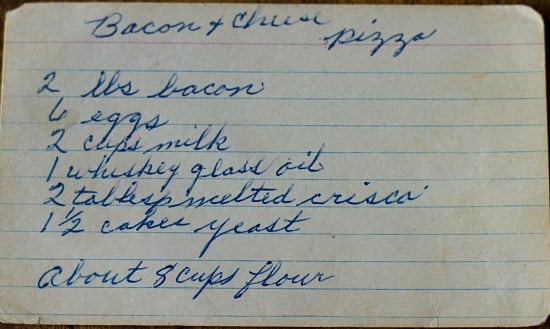 Bacon + Cheese pizza
2 lbs bacon
6 eggs
2 cups milk
1 whiskey glass oil
2 tablesp melted crisco
1 1/2 cakes yeast
about 8 cups flour